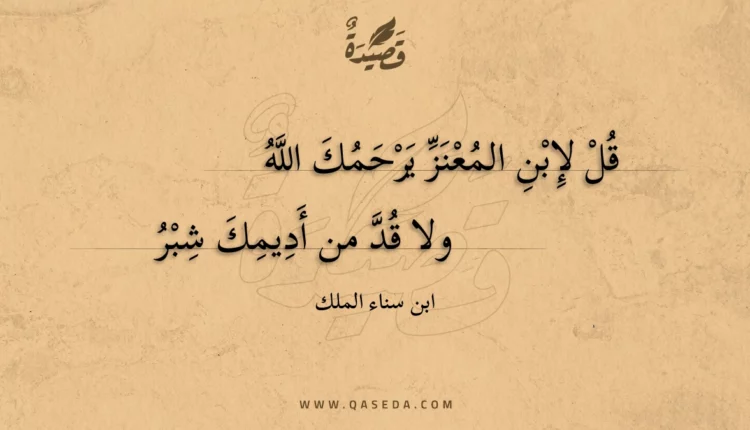 قَصِيْدَةٌ
قُلْ لإِبْنِ المُعْتَزِّ يَرْحَمُكَ اللَّهُ
ولا قُدَّ من أَدِيمِكَ شِبْرُ
ابن سناء الملك
WWW.QASEDA.COM